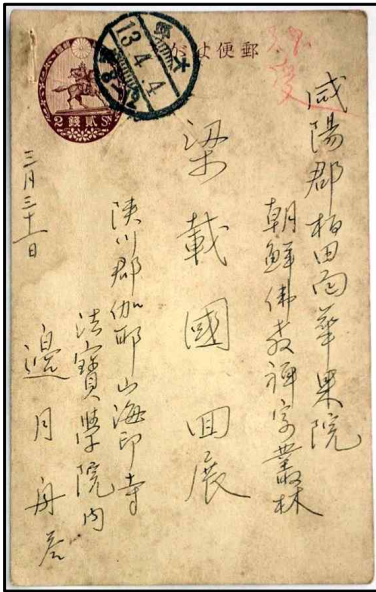 郵便はがき
貳錢
2 SN
13.4.4
咸陽郡栢田面華果院
朝鮮佛敎禪宗叢林
梁載國 回展
陜川郡伽耶山海印寺
法寶學院內
邊月舟
三月三十一日